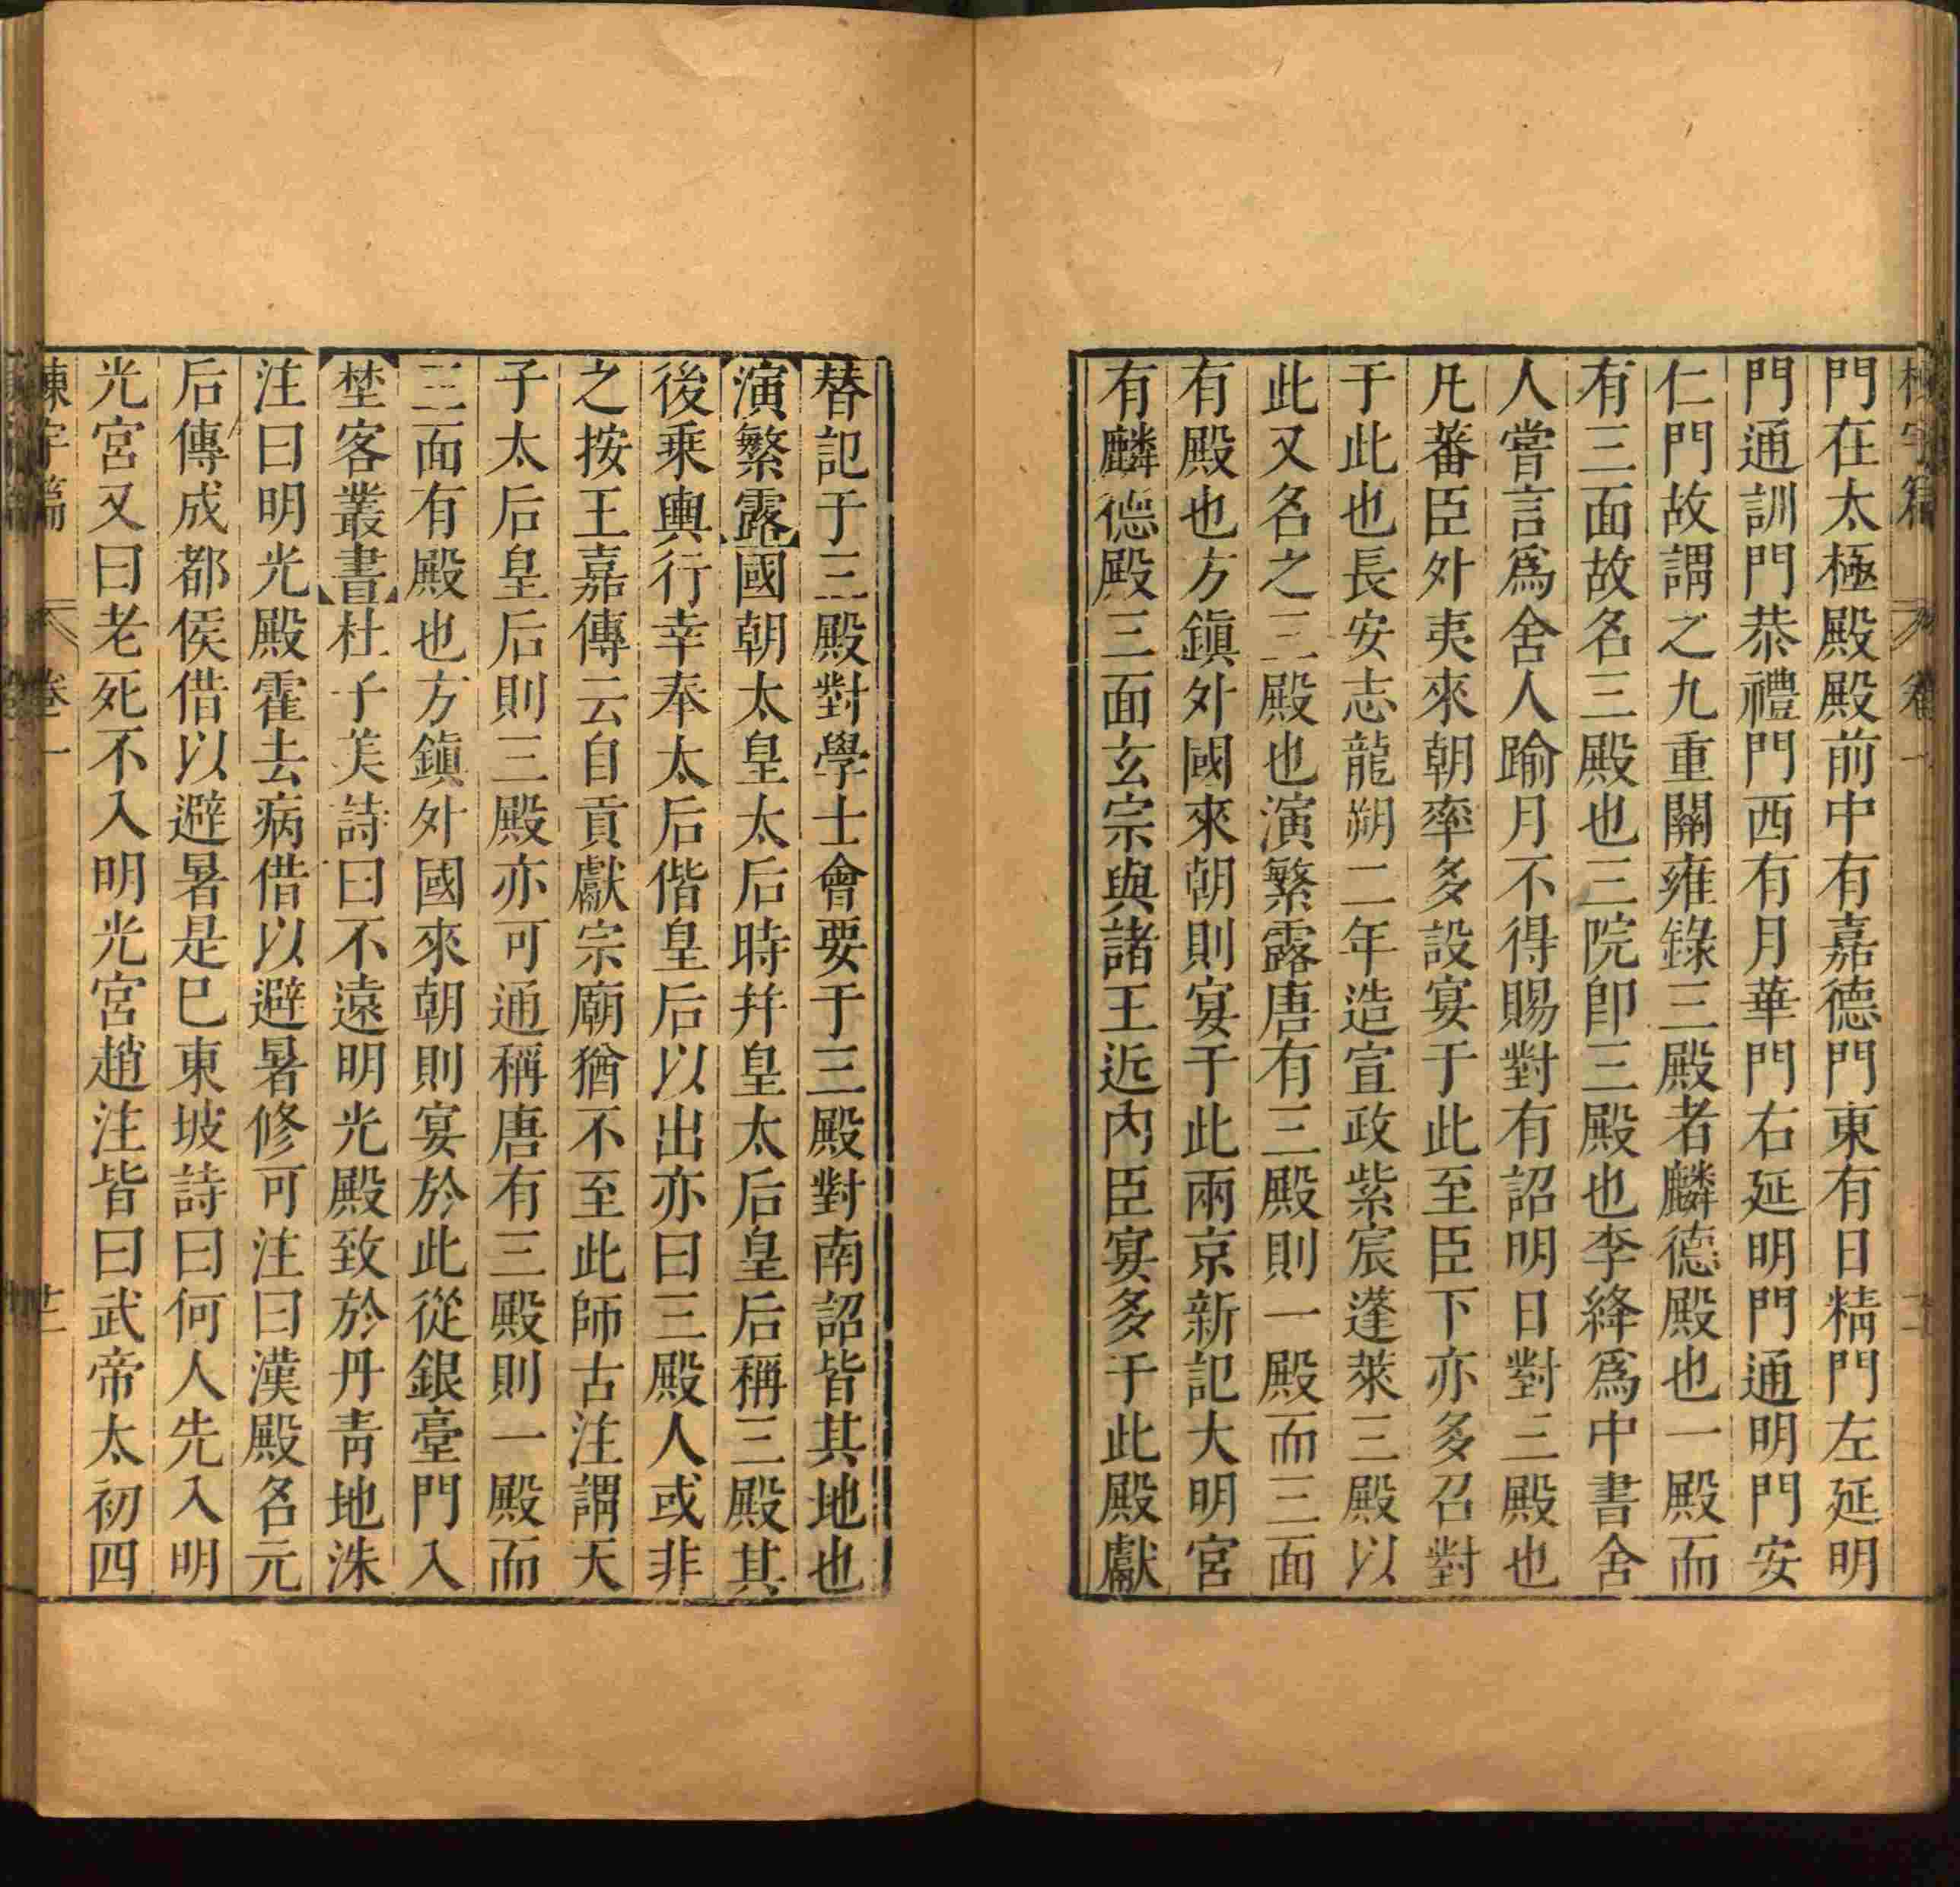 門在太極殿殿前中有嘉德門東有日精門左延明
門通訓門恭禮門西有月華門右延明門通明門安
仁門故謂之九重關雍錄三殿者麟德殿也一殿而
有三面故名三殿也三院即三殿也李絳爲中書舍
人嘗言爲舍人踰月不得賜對有詔明日對三殿也
凡蕃臣外夷來朝率多設宴于此至臣下亦多召對
于此也長安志龍朔二年造宣政紫宸蓬萊三殿以
此又名之三殿也演繁露唐有三殿則一殿而三面
有殿也方鎮外國來朝則宴于此兩京新記大明宮
有麟德殿三面玄宗與諸王近內臣宴多于此殿獻
替記于三殿對學士會要于三殿對南詔皆其地也
演繁露國朝太皇太后時幷皇太后皇后稱三殿其
後乗輿行幸奉太后偕皇后以出亦曰三殿人或非
之按王嘉傳云自貢獻宗廟猶不至此師古注謂天
子太后皇后則三殿亦可通稱唐有三殿則一殿而
三面有殿也方鎮外國來朝則宴於此從銀臺門入
埜客叢書杜子美詩曰不遠明光殿致於丹青地洙
注曰明光殿霍去病借以避暑修可注曰漢殿名元
后傳成都侯借以避暑是巳東坡詩曰何人先入明
光宮又曰老死不入明光宮趙注皆曰武帝太初四
卷一